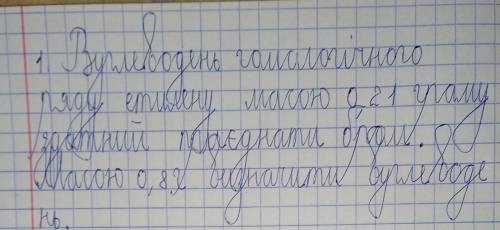 1. Вуглеводень гомологічного
ряду етилену масою 0,21 граму
здатний приєднати бром.
Масою 0,8г визначити вуглеводе
нь.